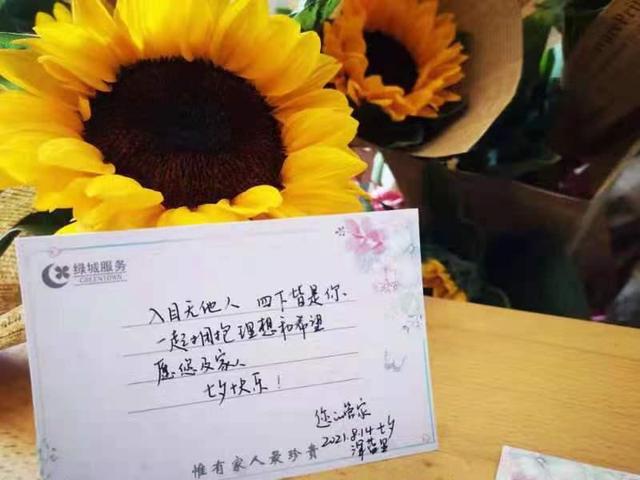 绿城服务
GREENTOWN
入目无他人 四下皆是你、
一起拥抱理想和希望
愿您及家人
七夕快乐！
您的管家
2021.8.14七夕
惟有家人最珍贵